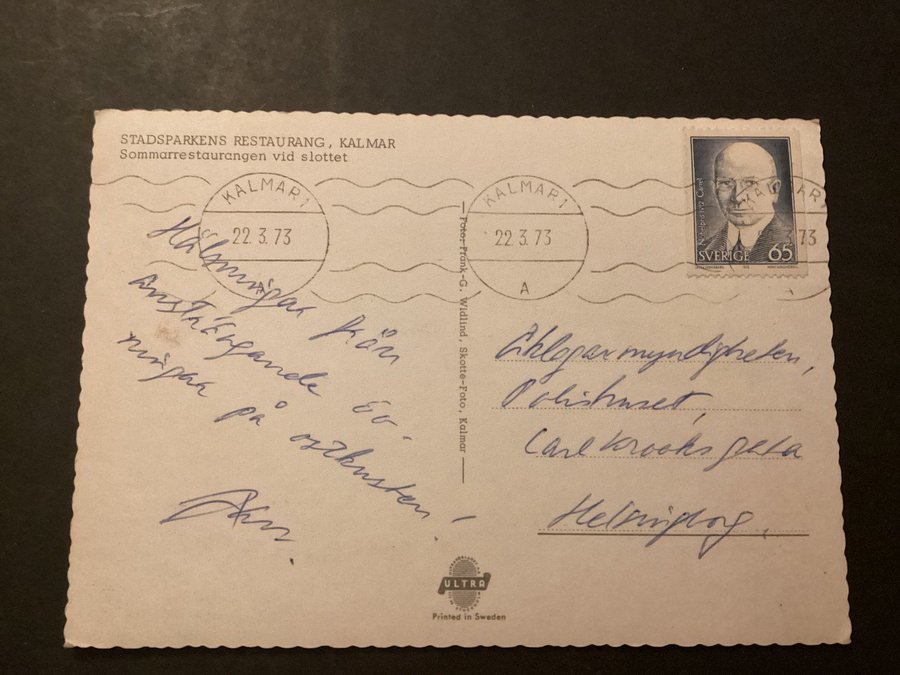 STADSPARKENS RESTAURANG, KALMAR
Sommarrestaurangen vid slottet
KALMAR 1
22.3.73
A
KALMAR 1
22.3.73
A
KALMAR
73
A
SVERIGE 65
Hälsningar från
ansträngande öv-
ningar på ostkusten!
Foto: Frank-G. Widlind, Skotte-Foto, Kalmar
Åklagarmyndigheten,
Polishuset,
Carl Krooks gata
Helsingborg.
ULTRA
Printed in Sweden